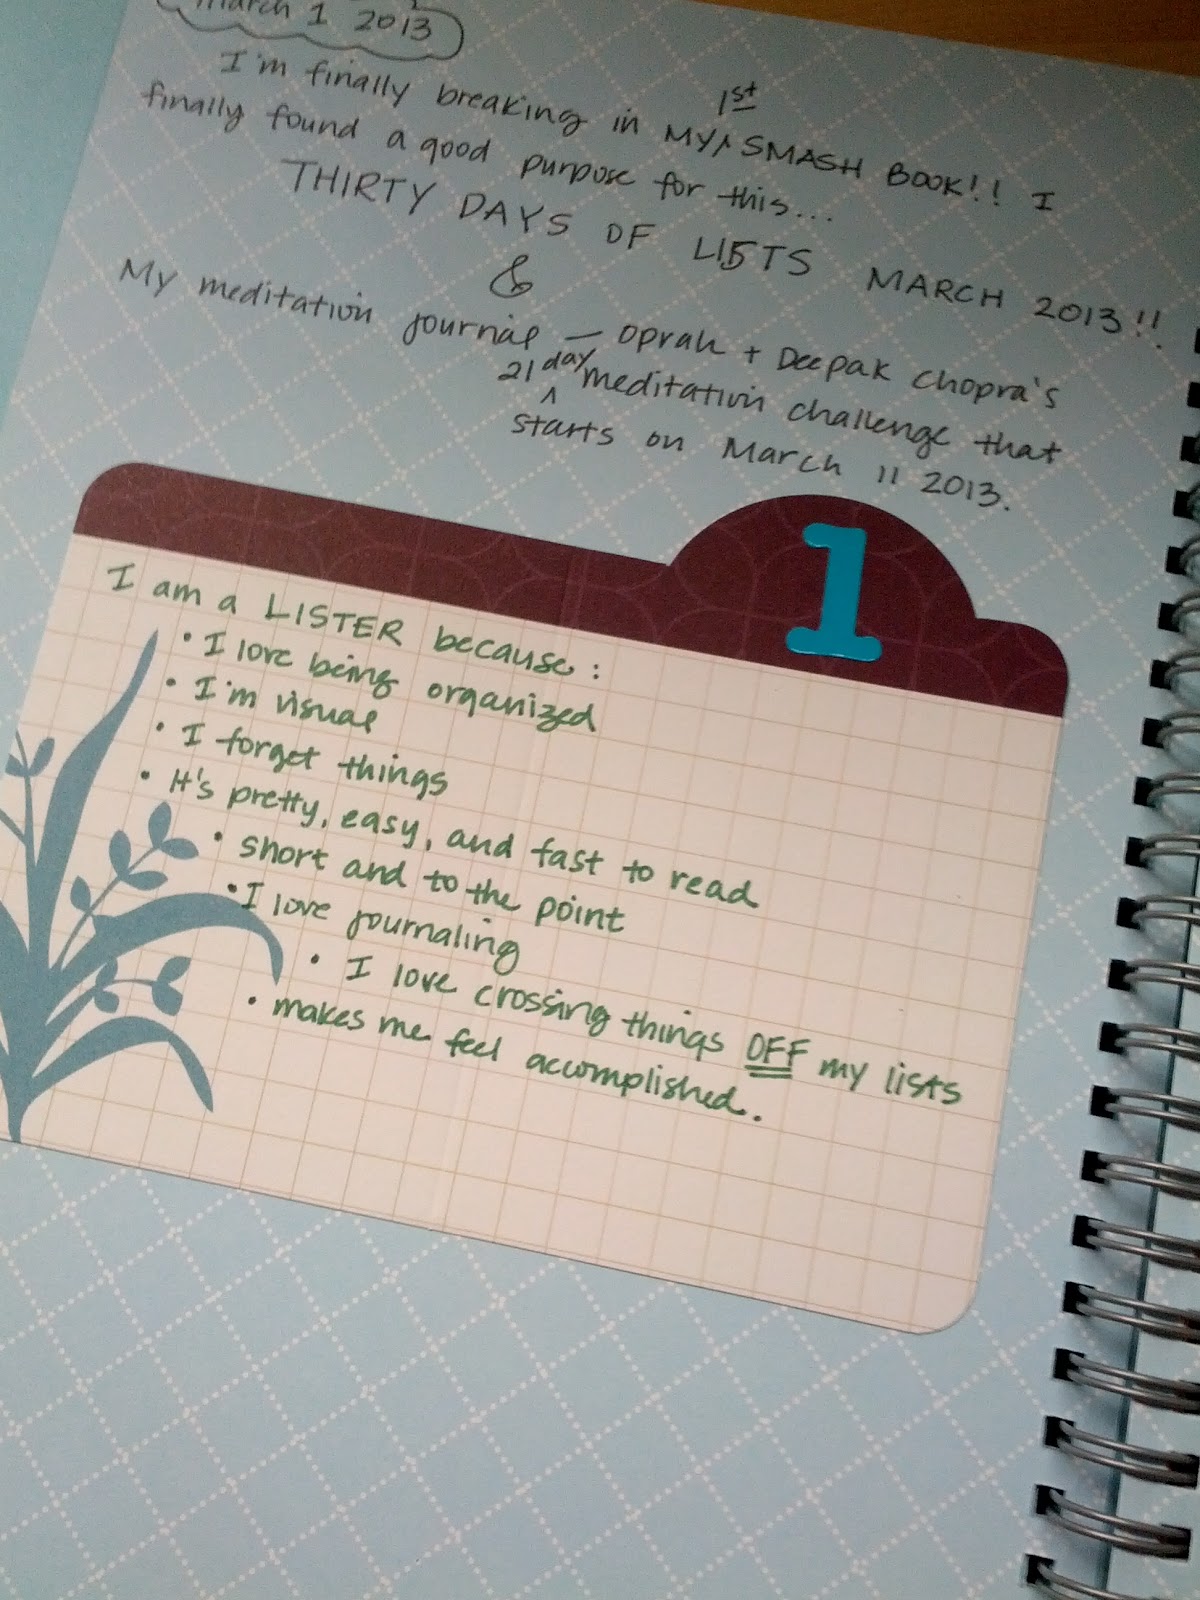 March 1 2013
I'm finally breaking in MY 1st SMASH BOOK!! I
finally found a good purpose for this...
THIRTY DAYS OF LISTS MARCH 2013!!
&
My meditation journal - Oprah + Deepak Chopra's
21 day meditation challenge that
starts on March 11 2013.
1
I am a LISTER because:
• I love being organized
• I'm visual
• I forget things
• It's pretty, easy, and fast to read
• short and to the point
• I love journaling
• I love crossing things OFF my lists
• makes me feel accomplished.